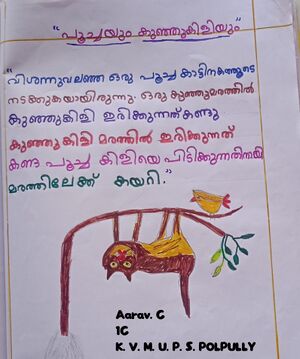 "പൂച്ചയും കുഞ്ഞുകിളിയും"
"വിശന്നുവലഞ്ഞ ഒരു പൂച്ച കാട്ടിനകത്തൂടെ
നടക്കുകയായിരുന്നു. ഒരു കുഞ്ഞുമരത്തിൽ
കുഞ്ഞുകിളി ഇരിക്കുന്നത് കണ്ടു
കുഞ്ഞുകിളി മരത്തിൽ ഇരിക്കുന്നത്
കണ്ട പൂച്ച കിളിയെ പിടിക്കുന്നതിനായി
മരത്തിലേക്ക് കയറി."
Aarav. C
1C
K. V. M. U. P. S. POLPULLY